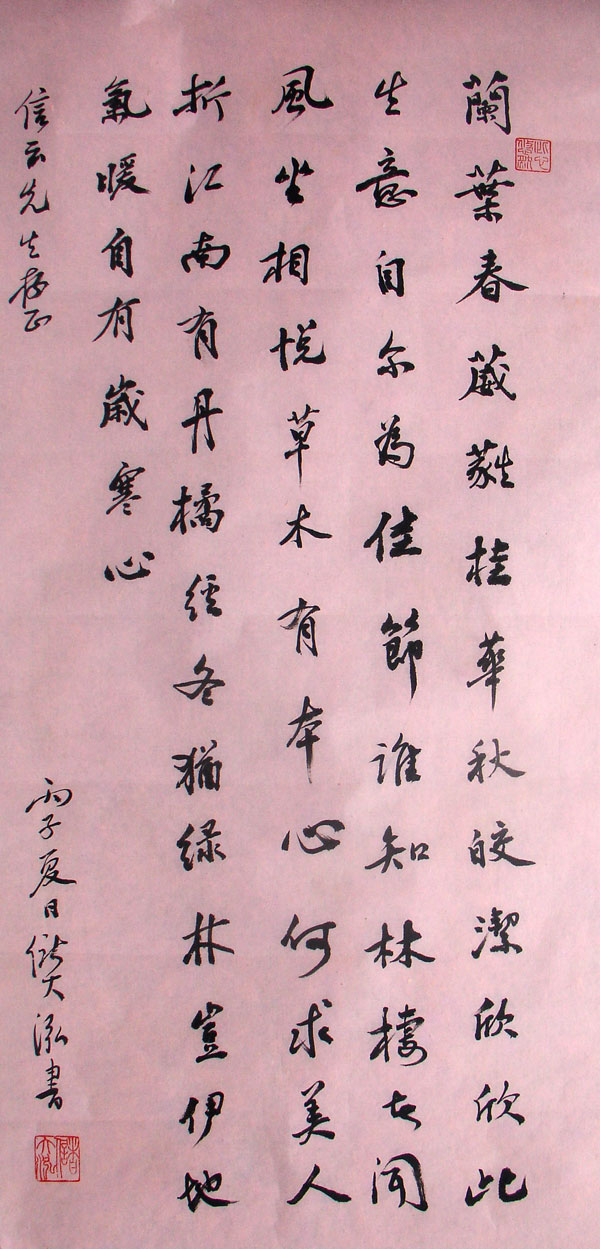 蘭葉春葳蕤桂華秋皎潔欣欣此
生意自尔為佳節誰知林棲者聞
風坐相悦草木有本心何求美人
折江南有丹橘經冬猶緑林豈伊地
氣暖自有歲寒心
信云先生存正
丙子夏日儲大泓書